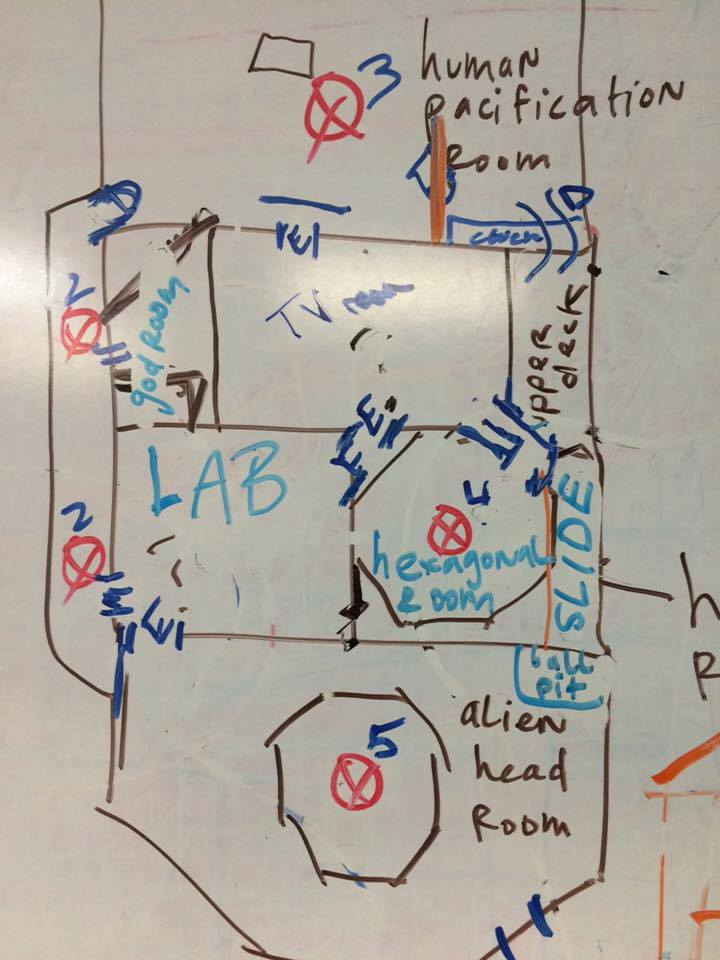 3 human
pacification
Room
2
god Room
TV room
upper
deck
LAB
4
hexagonal
Room
SLIDE
2
ball
pit
h
R
5
alien
head
Room